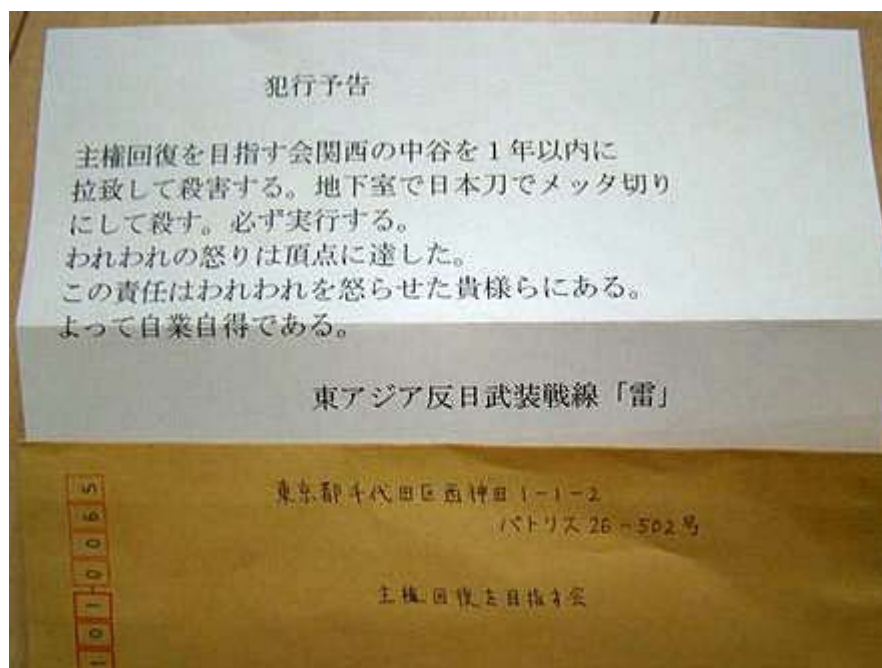 犯行予告
主権回復を目指す会関西の中谷を1年以内に
拉致して殺害する。地下室で日本刀でメッタ切り
にして殺す。必ず実行する。
われわれの怒りは頂点に達した。
この責任はわれわれを怒らせた貴様らにある。
よって自業自得である。
東アジア反日武装戦線「雷」
東京都千代田区西神田1-1-2
パトリス26-502号
主権回復を目指す会
1010065